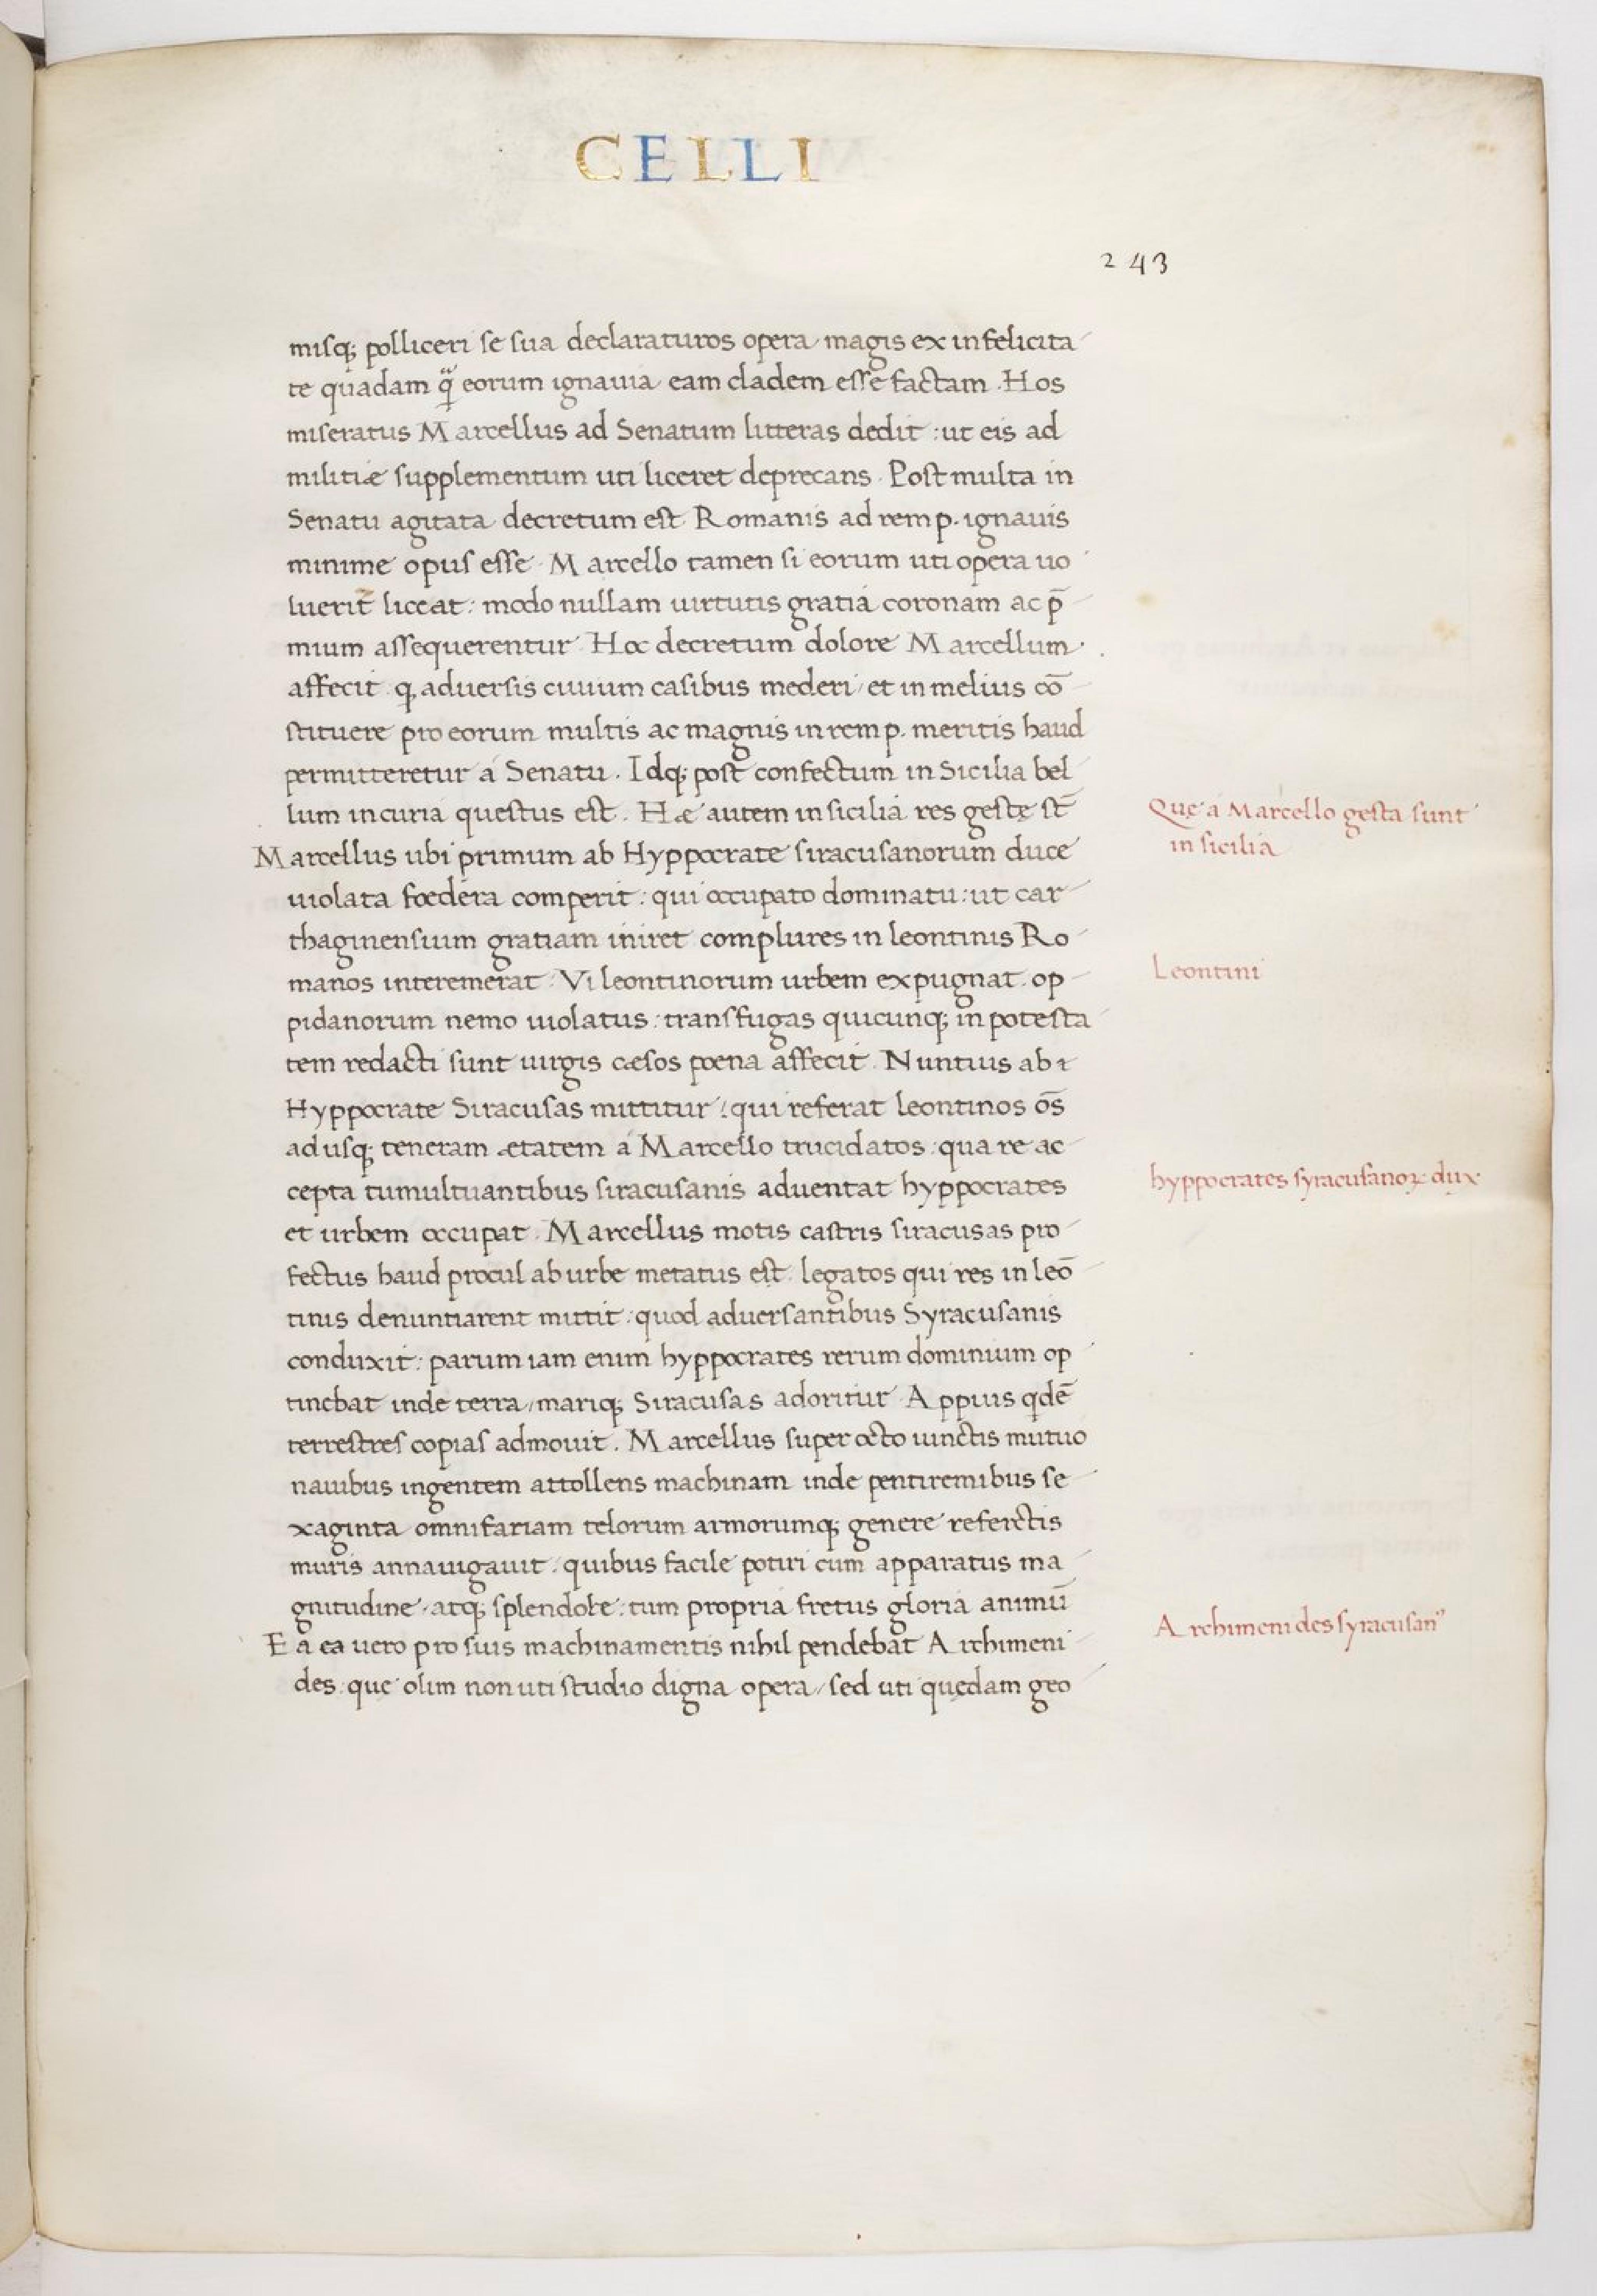 CELLI
243
misq; polliceri se sua declaraturos opera magis ex infelicita
te quadam q̃ eorum ignauia eam cladem esse factam. Hos
miseratus Marcellus ad Senatum litteras dedit: ut eis ad
militiæ supplementum uti liceret deprecans. Post multa in
Senatu agitata decretum est Romanis ad rem p. ignauis
minime opus esse. Marcello tamen si eorum uti opera uo
luerit liceat: modo nullam uirtutis gratia coronam ac p̄
mium assequerentur. Hoc decretum dolore Marcellum
affecit. ꝙ aduersis ciuium casibus mederi / et in melius cō
stituere pro eorum multis ac magnis in rem p. meritis haud
permitteretur a Senatu. Idq; post confectum in Sicilia bel
lum in curia questus est. Hæ autem in sicilia res gestę st̄
Que a Marcello gesta sunt
in sicilia
Marcellus ubi primum ab Hyppocrate siracusanorum duce
uiolata foedera comperit: qui occupato dominatu: ut car
thaginensium gratiam iniret complures in leontinis Ro
manos interemerat. Vi leontinorum urbem expugnat. op
Leontini
pidanorum nemo uiolatus: transfugas quicunq; in potesta
tem redacti sunt uirgis cæsos poena affecit. Nuntius ab
Hyppocrate Siracusas mittitur: qui referat leontinos ōs
ad usq; teneram ætatem a Marcello trucidatos: qua re ac
cepta tumultuantibus siracusanis aduentat hyppocrates
hyppocrates syracusanoꝝ dux.
et urbem occupat. Marcellus motis castris siracusas pro
fectus haud procul ab urbe metatus est. legatos qui res in leō
tinis denuntiarent mittit: quod aduersantibus Syracusanis
conduxit: parum iam enim hyppocrates rerum dominium op
tinebat inde terra / mariq; Siracusas adoritur. Appius qdē
terrestres copias admouit. Marcellus super octo uinctis mutuo
nauibus ingentem attollens machinam inde pentiremibus se
xaginta omnifariam telorum armorumq; genere referctis
muris annauigauit: quibus facile potiri cum apparatus ma
gnitudine. atq; splendore: tum propria fretus gloria animū
Ea ea uero pro suis machinamentis nihil pendebat Archimeni
Archimenides syracusanꝰ
des: quę olim non uti studio digna opera / sed uti quędam geo